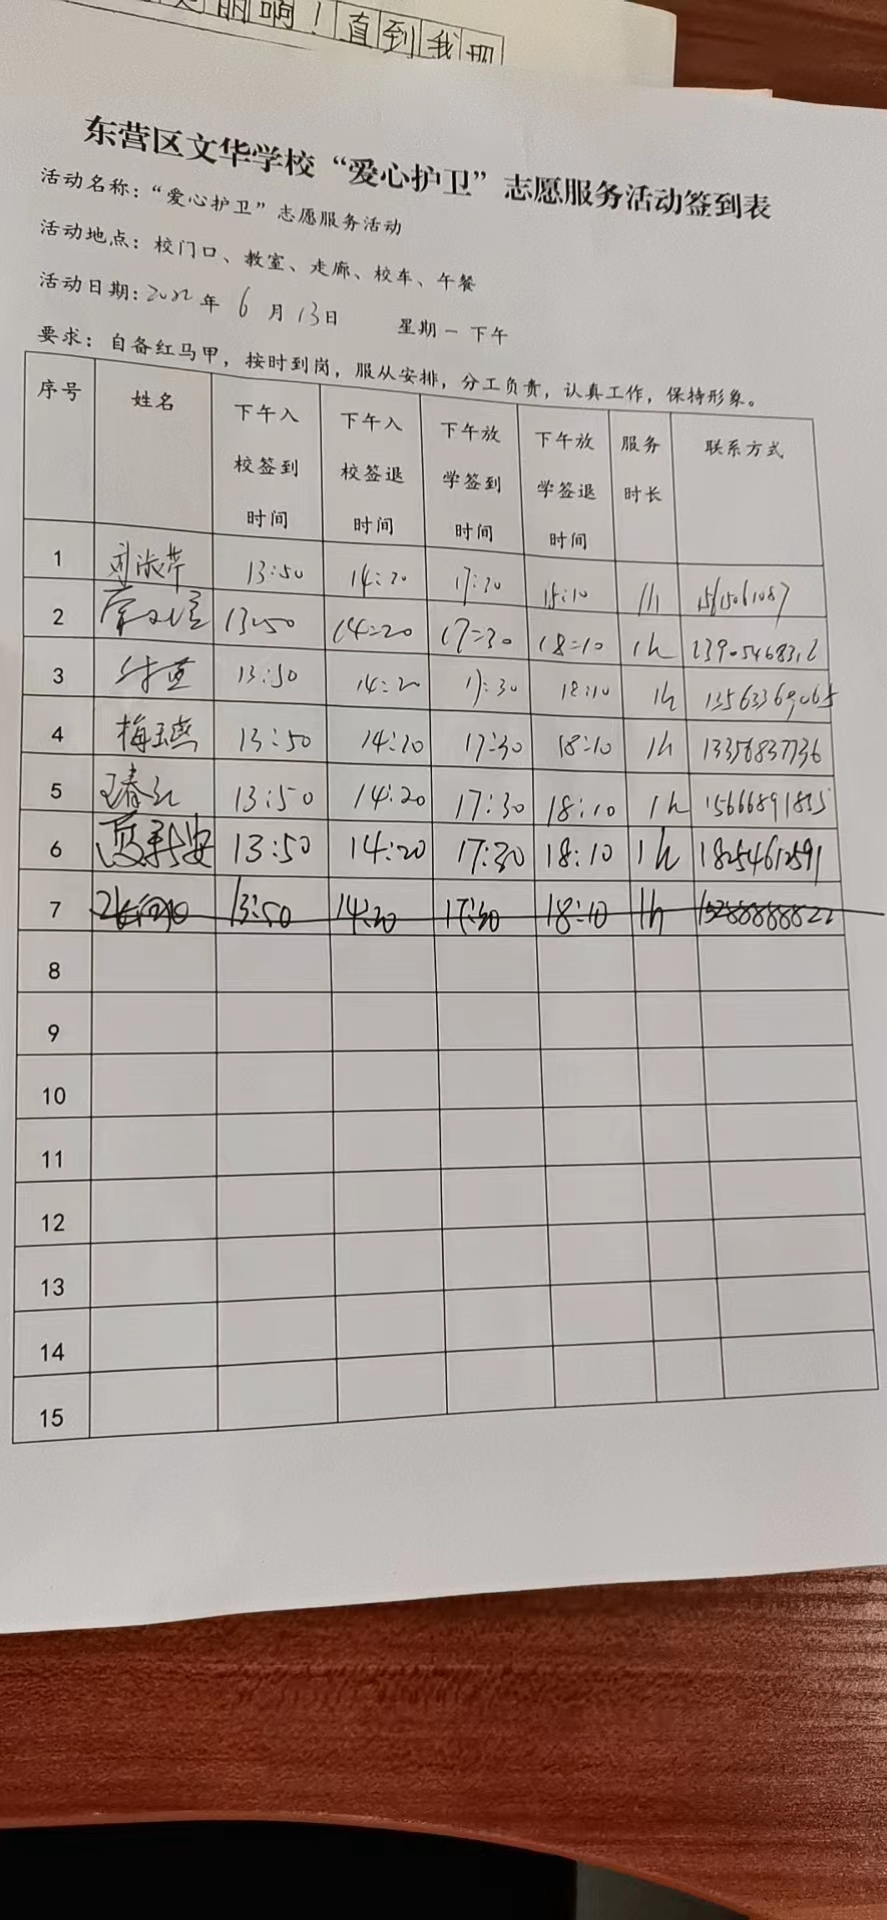 啊！直到我
东营区文华学校“爱心护卫”志愿服务活动签到表
活动名称：“爱心护卫”志愿服务活动
活动地点：校门口、教室、走廊、校车、午餐
活动日期：2022年 6 月 13日 星期一 下午
要求：自备红马甲，按时到岗，服从安排，分工负责，认真工作，保持形象。
序号 姓名 下午入校签到时间 下午入校签退时间 下午放学签到时间 下午放学签退时间 服务时长 联系方式
1 刘淑芹 13:50 14:20 17:30 18:10 1h
2 13:50 14:20 17:30 18:10 1h
3 13:50 14:20 17:30 18:10 1h 13563369065
4 梅玉燕 13:50 14:20 17:30 18:10 1h 13356837736
5 王春红 13:50 14:20 17:30 18:10 1h 15666891835
6 夏新安 13:50 14:20 17:30 18:10 1h 18254612591
7 13:50 14:20 17:30 18:10 1h
8
9
10
11
12
13
14
15